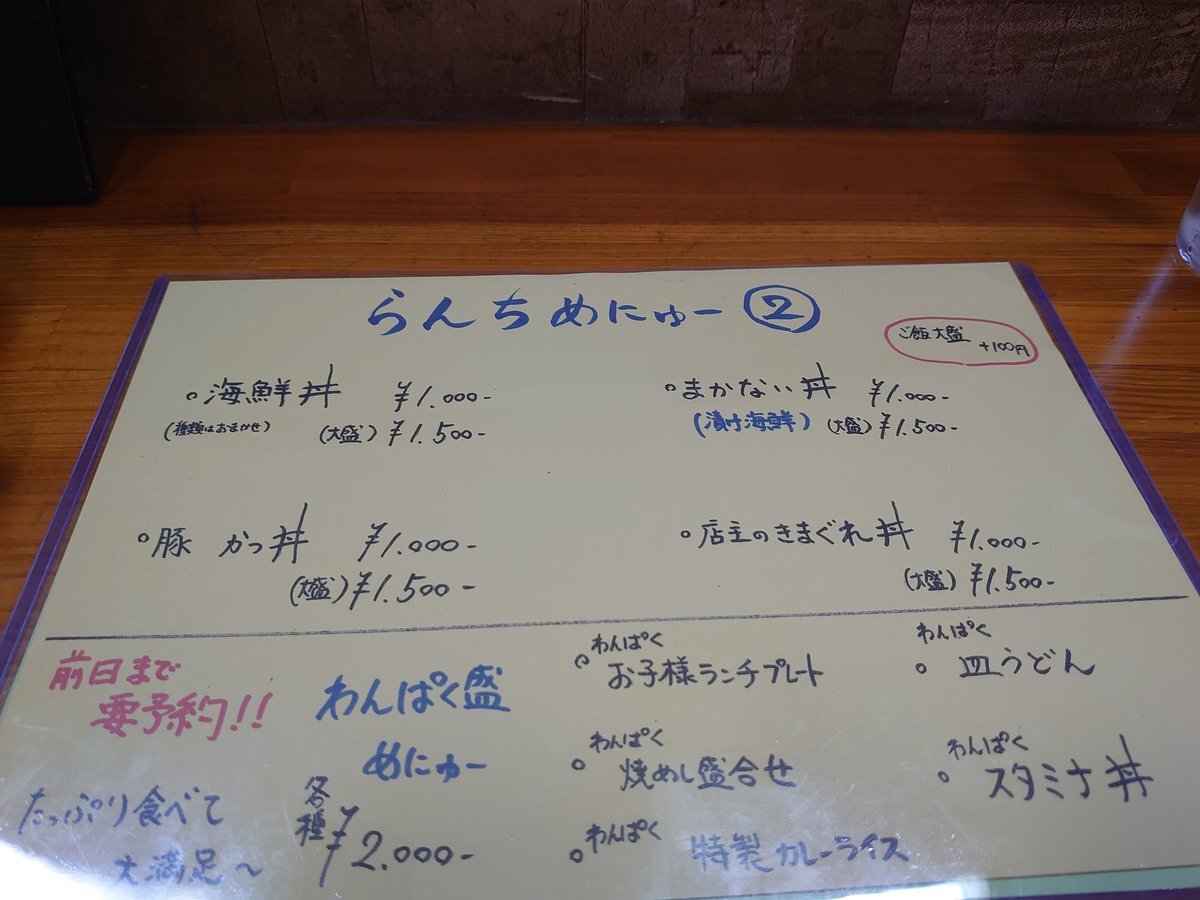 らんちめにゅー②
ご飯大盛
+100円
○海鮮丼 ¥1.000-
(種類はおまかせ) (大盛)¥1.500-
○まかない丼 ¥1.000-
(漬け海鮮) (大盛)¥1.500-
○豚かつ丼 ¥1.000-
(大盛)¥1.500-
○店主のきまぐれ丼 ¥1.000-
(大盛)¥1.500-
前日まで
要予約!!
わんぱく盛
めにゅー
たっぷり食べて
大満足~
各種 ¥2.000-
わんぱく
○お子様ランチプレート
わんぱく
○皿うどん
わんぱく
○焼めし盛合せ
わんぱく
○スタミナ丼
わんぱく
○特製カレーライス